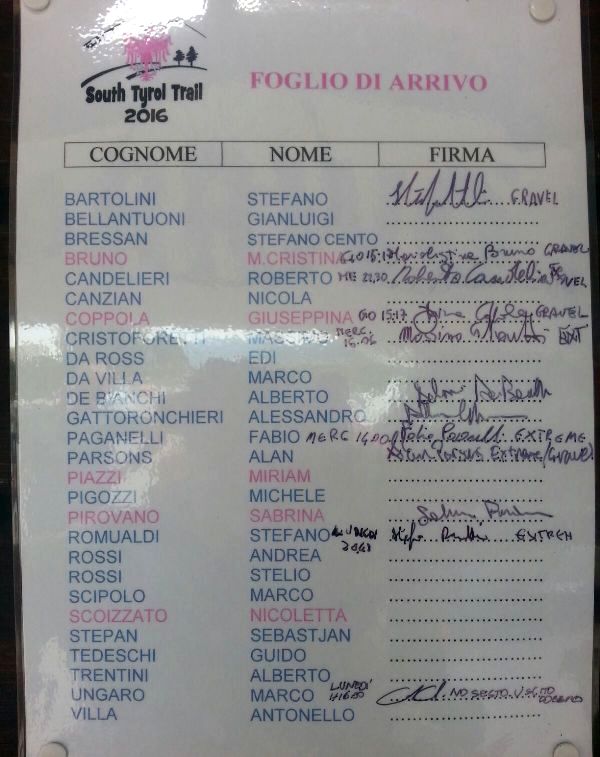 South Tyrol Trail
2016
FOGLIO DI ARRIVO
COGNOME NOME FIRMA
BARTOLINI STEFANO GRAVEL
BELLANTUONI GIANLUIGI
BRESSAN STEFANO CENTO
BRUNO M.CRISTINA GIO 15:17 Bruno GRAVEL
CANDELIERI ROBERTO ME 22,30 Roberto
CANZIAN NICOLA
COPPOLA GIUSEPPINA GIO 15:17 GRAVEL
CRISTOFORETTI MASSIMO MERC. 16.06 Massimo EXT
DA ROSS EDI
DA VILLA MARCO
DE BIANCHI ALBERTO
GATTORONCHIERI ALESSANDRO
PAGANELLI FABIO MERC 14.00 Fabio EXTREME
PARSONS ALAN Alan Parsons Extreme/Gravel
PIAZZI MIRIAM
PIGOZZI MICHELE
PIROVANO SABRINA
ROMUALDI STEFANO EXTREM
ROSSI ANDREA
ROSSI STELIO
SCIPOLO MARCO
SCOIZZATO NICOLETTA
STEPAN SEBASTJAN
TEDESCHI GUIDO
TRENTINI ALBERTO
UNGARO MARCO LUNEDI' NO
VILLA ANTONELLO